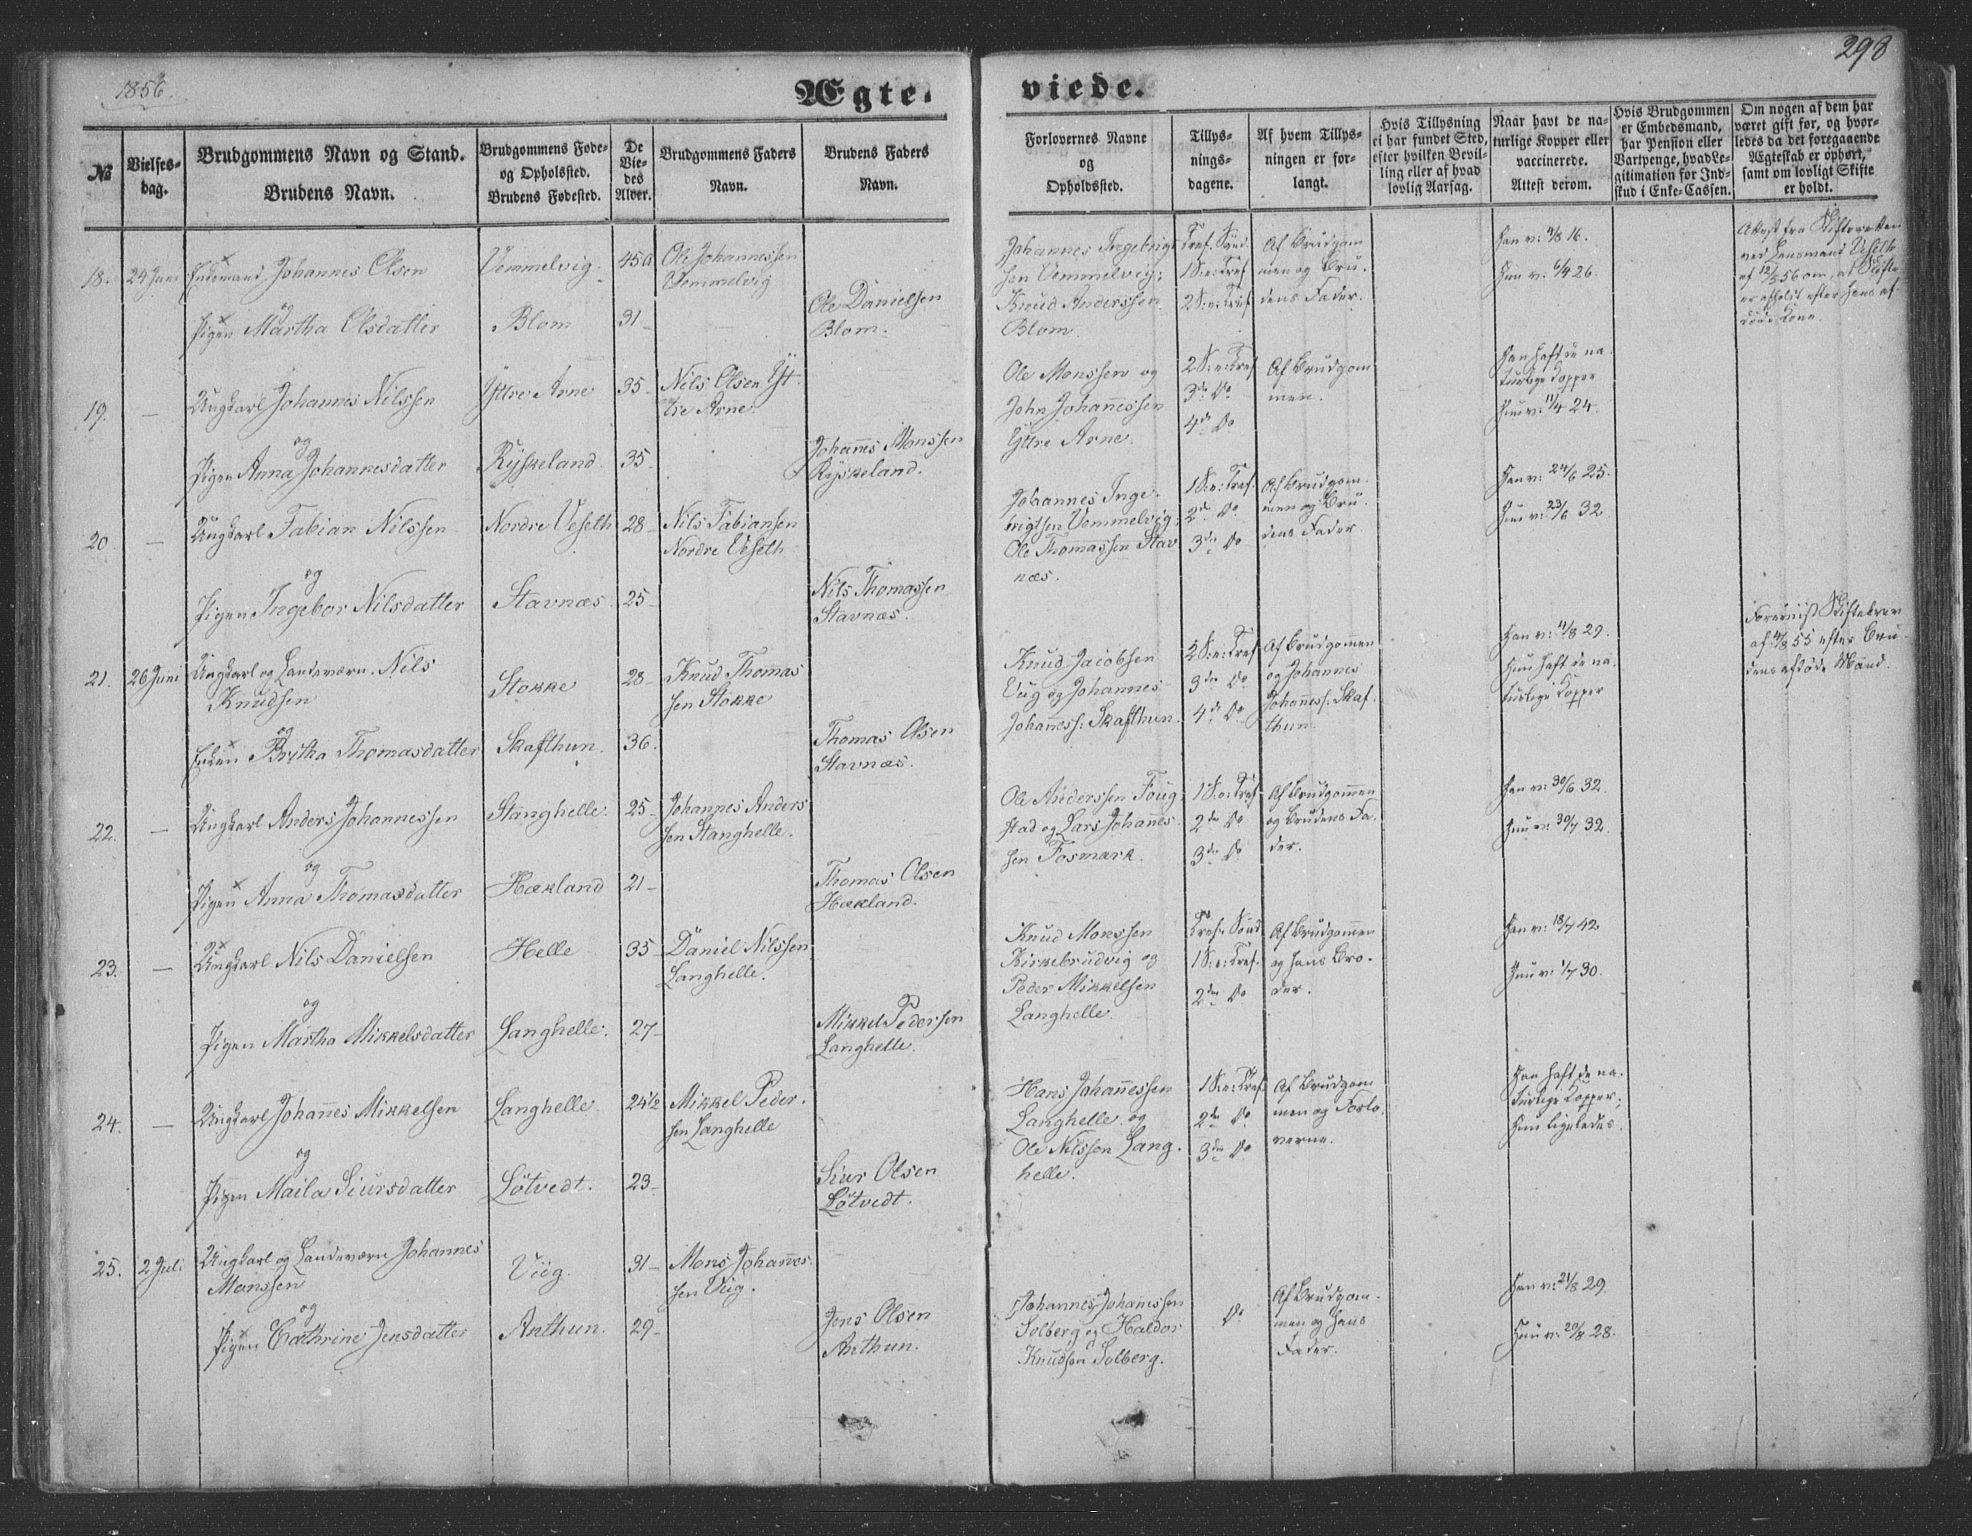 1856.
298
Ægte-
viede.
№
Vielses-
dag.
Brudgommens Navn og Stand.
Brudens Navn.
Brudgommens Føde-
og Opholsted.
Brudens Fødested.
De
Vie-
des
Alder.
Brudgommens Faders
Navn.
Brudens Faders
Navn.
Forlovernes Navne
og
Opholdssted.
Tillys-
nings-
dagene.
Af hvem Tillys-
ningen er for-
langt.
Hvis Tillysning
ei har fundet Sted,
efter hvilken Bevil-
ling eller af hvad
lovlig Aarsag.
Naar havt de na-
turlige Kopper eller
vaccinerede.
Attest derom.
Hvis Brudgommen
er Embedsmand,
har Pension eller
Vartpenge, hvad Le-
gitimation for Ind-
skud i Enke-Cassen.
Om nogen af dem har
været gift før, og hvor-
ledes da det foregaaende
Ægteskab er ophørt,
samt om lovligt Skifte
er holdt.
18.
24 Juni
Enkemand Johannes Olsen
og
Pigen Martha Olsdatter
Vemmelvig.
Blom
45
31
Ole Johannessen
Vemmelvig
Ole Danielsen
Blom.
Johannes Ingebrigt
sen Vemmelvig;
Knud Anderssen
Blom.
Tref. Sønd.
1 S: e: Tref
2 S: e: Tref
Af Brudgom
men og Bru-
dens Fader.
Han v: 4/8 16.
Hun v: 6/4 26.
Attest fra Skifteretten
ved Lensmand
af 12/5 56 om, at Skifte
er afholdt efter hans af
døde Kone.
19.
—
Ungkarl Johannes Nilssen
og
Pigen Anna Johannesdatter
Yttre Arne
Rÿskeland
35
35
Nils Olsen Yt
tre Arne.
Johannes Monssen
Rÿskeland.
Ole Monssen og
John Johannessen
Yttre Arne.
2 S: e: Tref
3de Do
4de Do
Af Brudgom
men.
Han haft de na-
turlige Kopper
Hun v: 11/4 24.
20.
—
Ungkarl Fabian Nilssen
og
Pigen Ingebor Nilsdatter
Nordre Veseth
Stavnæs
28
25
Nils Fabiansen
Nordre Veseth
Nils Thomassen
Stavnæs.
Johannes Inge-
brigtsen Vemmelvig;
Ole Thomassen Stav
næs.
1 S: e: Tref.
2de Do
3de Do
Af Brudgom-
men og Bru-
dens Fader
Han v: 24/6 25.
Hun v: 23/6 32.
21.
26 Juni
Ungkarl og Landeværn. Nils
Knudsen
og
Enken Britha Thomasdatter
Stokke
Skafthun.
28
36.
Knud Thomas
sen Stokke
Thomas Olsen
Stavnæs.
Knud Jacobsen
Viig og Johannes
Johanness: Skafthun.
2 S: e: Tref
3de Do
4de Do
Af Brudgommen
og Johannes
Johanness: Skaf-
thun.
Han v: 4/8 29.
Hun haft de na
turlige Kopper
Forevist Skiftebrev
af 4/8 55 efter Bru-
dens afdøde Mand.
22.
—
Ungkarl Anders Johannessen
og
Pigen Anna Thomasdatter
Stanghelle.
Hækland
25
21
Johannes Anders
sen Stanghelle.
Thomas Olsen
Hækland.
Ole Anderssen Foug
stad og Lars Johannes
sen Fosmark.
1 S: e: Tref
2de Do
3de Do
Af Brudgommen
og Brudens Fa-
der.
Han v: 30/6 32.
Hun v: 30/7 32.
23.
—
Ungkarl Nils Danielsen
og
Pigen Martha Mikkelsdatter
Helle
Langhelle.
35
27
Daniel Nilssen
Langhelle.
Mikkel Pedersen
Langhelle.
Knud Monssen
Kirkebrudvig og
Peder Mikkelsen
Langhelle.
Tref. Sønd
1 S: e: Tref.
2den Do
Af Brudgommen
og hans Bro-
der.
Han v: 18/7 42
Hun v: 1/7 30.
24.
—
Ungkarl Johannes Mikkelsen
og
Pigen Maila Siursdatter
Langhelle
Løtvedt.
24½
23
Mikkel Peder-
sen Langhelle
Siur Olsen
Løtvedt.
Hans Johannessen
Langhelle og
Ole Nilssen Lang-
helle.
1 S: e: Tref
2den Do
3den Do
Af Brudgom
men og Forlo
verne.
Han haft de na-
turlige Kopper;
Hun ligeledes.
25.
2 Juli
Ungkarl og Landeværn Johannes
Monssen
og
Pigen Cathrine Jensdatter
Viig.
Anthun.
31
29
Mons Johannes-
sen Viig.
Jens Olsen
Anthun.
Johannes Johannessen
Solberg og Haldor
Knudsen Solberg.
Do
Af Brudgom-
men og hans
Fader.
Han v: 21/8 29.
Hun v: 20/8 28.